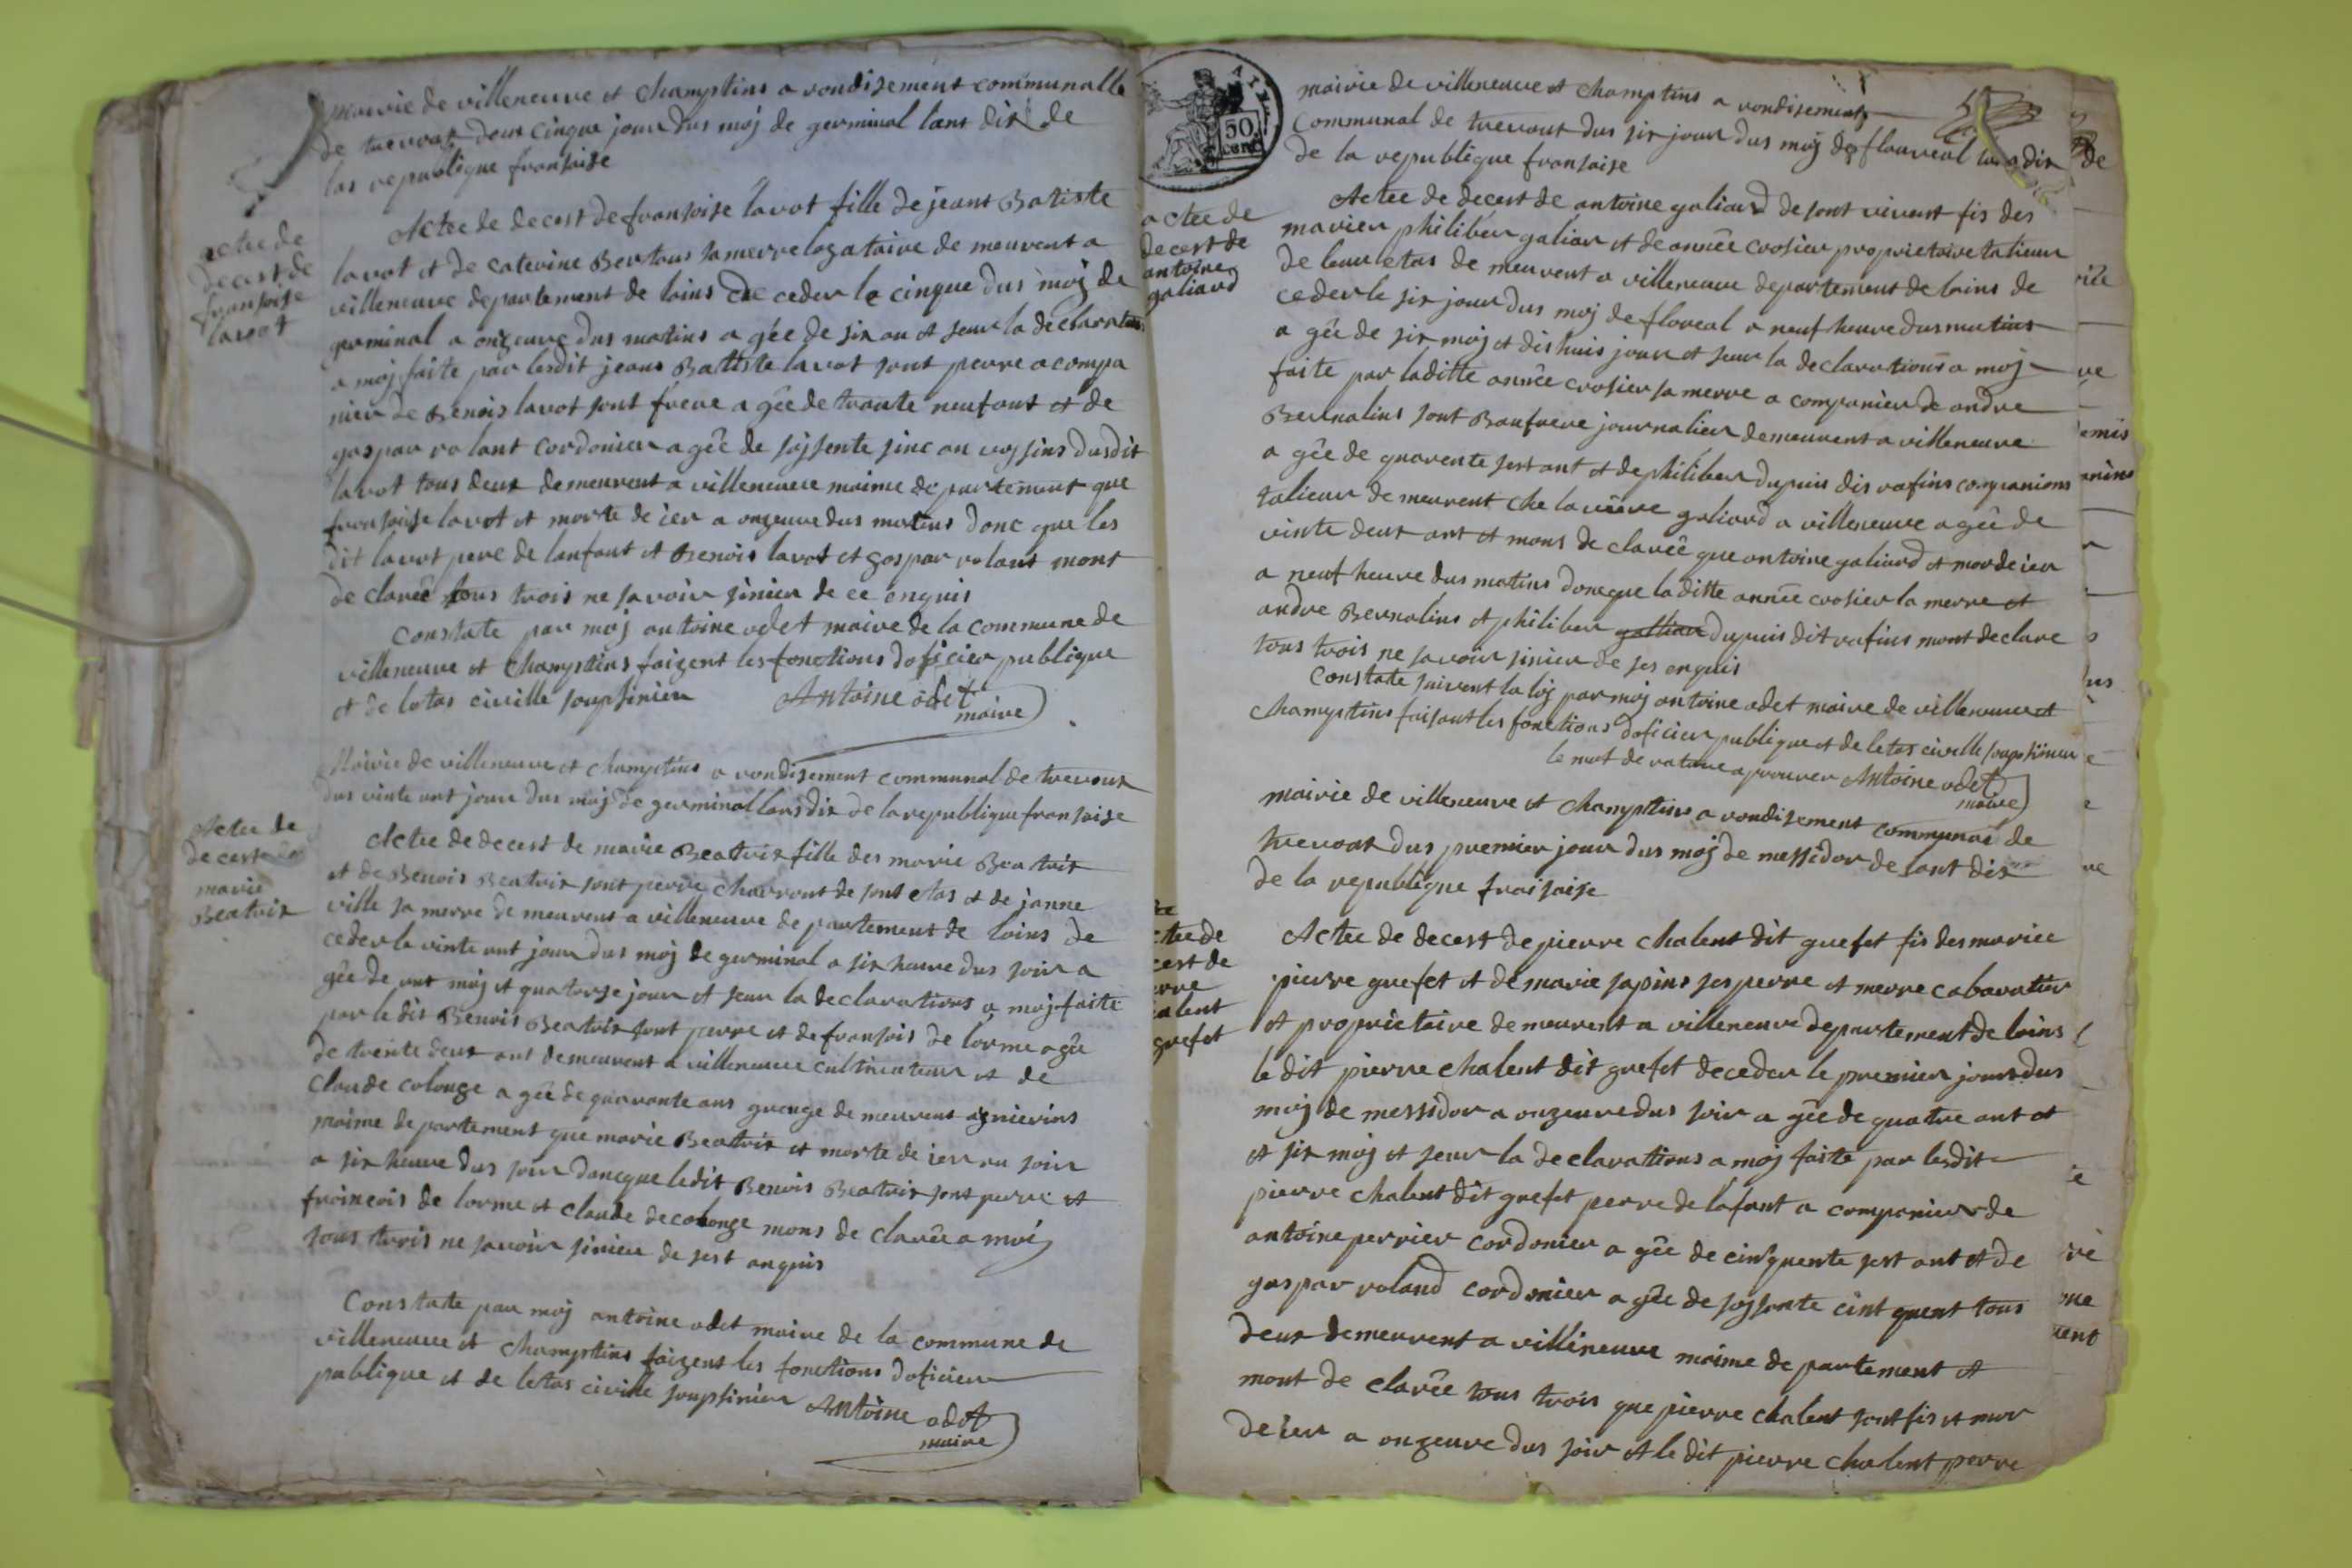 mairie de villeneuve et champtins a rondisement communalle
de trevoux deux cinque jour dus moj de germinal lant dix de
las republique fransaise
actee de
decest de
fransoise
lavot
Actee de decest de fransoise lavot fille de jeant Batiste
lavot et de caterine Bertous sa merre logataire de meurent a
villeneuve departement de loins de ceder le cinque dus moj de
germinal a onzeure dus matins a gée de six an et seur la declarations
a moj faite par lesdit jeans Batiste lavot sont perre acompa
nier de Benois lavot sont frere a gée de trante neuf ant et de
gaspar rolant cordonier a gée de sojsente sinc an vojsins dusdit
lavot tous deux demeurent a villeneuve maime departement que
fransoise lavot et morte de ier a onzeuve dus matins donc que les
dit lavot pere de lenfant et Benois lavot et gaspar rolant mont
de clarée tous trois ne savoir sinier de ce enquis
Constate par moj antoine odet maire de la commune de
villeneuve et champtins faizent les fonctions doficier publique
et de letas civille soupsinier Antoine odet
maire
Mairie de villeneuve et champtins a rondisement communal de trevoux
dus vinte unt jour dus moj de germinal lans dix de la republique fransaise
Actee de
decest de
marie
Beatrix
Actee de decest de marie Beatrix fille des marie Beatrix
et de Benois Beatrix sont perre charront de sont etas et de janne
ville sa merre de meurent a villeneuve departement de loins de
ceder le vinte unt jour dus moj de germinal a six heure dus soir a
gée de unt moj et quatorze jour et seur la declarations a moj faite
par le dit Benois Beatrix sont perre et de fransois de lorme agée
de trente deux ant demeurent a villeneuve cultivateur et de
claude colonge a gée de quarante ans grange de meurent agnierins
maime departement que marie Beatrix et morte de ier au soir
a six heure dus soir doncque ledit Benois Beatrix sont perre et
fraincois de lorme et claude decolonge mons de clarée a moi
tous trois ne savoir sinier de sest anquis
Constate par moj antoine odet maire de la commune de
villeneuve et champtins faizent les fonctions doficier
publique et de letas civille soupsinier Antoine odet
maire
50
cent
mairie de villeneuve et champtins a rondisement
Communal de trevoux dus six jour dus moj de floureal dix
de la republique fransaise
actee de
decest de
antoine
galiard
Actee de decest de antoine galiard de sont vivant fis des
marier philiber galiar et de année crosier proprietaire talieur
de leur etas de meurent a villeneuve departement de loins de
ceder le six jour dus moj de floreal a neuf heure dus matins
a gée de six moj et dis huis jour et seur la declarations a moj
faite par laditte année crosier sa merre a companier de andre
Bernalins sont Baufrere journalier demeurent a villeneuve
a gée de quarente sest ant et de philiber dupuis dis rafins companions
talieur de meurent che la veuve galiard a villeneuve agée de
vinte deux ant et mons de clarée que antoine galiard et mor de ier
a neuf heure dus matins doncque laditte année crosier la merre et
andre Bernalins et philiber gallian dupuis dit rafins mont declare
tous trois ne savoir sinier de ses enquis
Constate suivent la loj par moj antoine odet maire de villeneuve et
champtins faisant les fonctions doficier publique et de letas civille soupsinier
le mot de rature aprouver Antoine odet
maire
mairie de villeneuve et champtins a rondisement communal de
trevoux dus premier jour dus moj de messidor de lant dix
de la republique fraisaise
ctee de
cest de
erre
alent
grefet
Actee de decest de pierre chalent dit grefet fis des mariee
pierre grefet et de marie sapins ses perre et merre cabaratier
et proprietaire demeurent a villeneuve departement de loins
le dit pierre chalent dit grefet deceder le premier jour dus
moj de messidor a onzeure dus soir a gée de quatre ant et
et six moj et seur la declarations a moj faite par lesdit
pierre chalent dit grefet perre de lafant a companier de
antoine perrier cordonier a gée de cinquente sest ant et de
gaspar roland cordonier a gée de sojsente cint quent tous
deux demeurent a villeneuve maime departement et
mont de clarée tous trois que pierre chalent sont fis et mor
de ier a onzeure dus soir et le dit pierre chalent perre